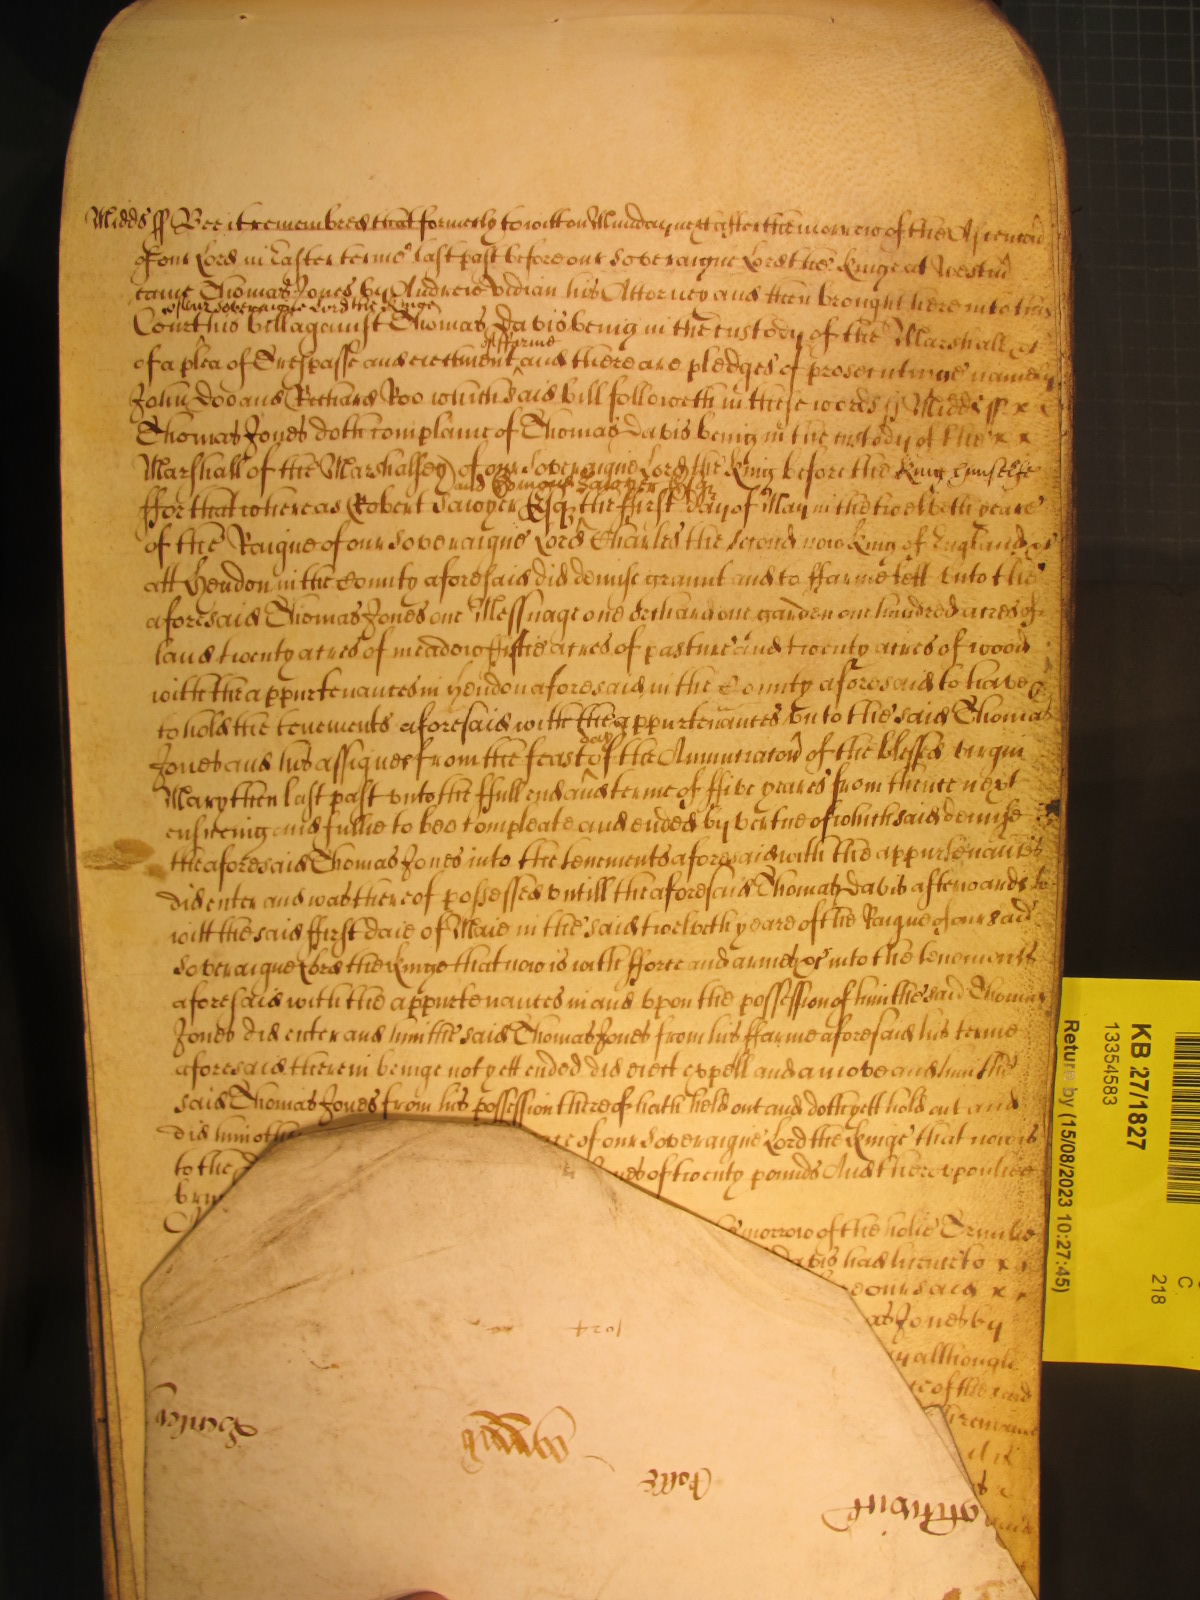 Midds ss Bee it remembred that formerly to witt on Munday next after the morrow of the Ascencon
of our Lord in Easter terme last past before our Soveraigne Lord the Kinge at Westm
came Thomas Jones by Andrew Vidian his Attorney and then brought here into the
of our Soveraigne Lord the Kinge
Court his bill against Thomas Davis being in the custody of the Marshall &c
of farme
of a plea of Trespasse and eiectment and there are pledges of prosecutinge namely
John Doo and Richard Roo which said bill followeth in these words ss Midds ss x
Thomas Jones doth complaine of Thomas Davis being in the custody of the x x
Marshall of the Marshalsey of our Soveraigne Lord the King before the King himselfe
and Edmond Sawyer Esqr
ffor that whereas Robert Sawyer Esqr the ffirst day of May in the twelveth yeare
of the Raigne of our Soveraigne Lord Charles the second now King of England &c
att Hendon in the County aforesaid did demise graunt and to ffarme lett unto the
aforesaid Thomas Jones one Messuage one orchard one garden one hundred acres of
land twenty acres of meadow ffiftie acres of pasture and twenty acres of wood
with the appurtenances in Hendon aforesaid in the County aforesaid to have &
to hold the tenements aforesaid with the appurtenances unto the said Thomas
day
Jones and his assignes from the feast of the Annunciacon of the blessed virgin
Mary then last past unto the ffull end and terme of ffive yeares from thence next
ensueing and fullie to bee compleate and ended by vertue of which said demise
the aforesaid Thomas Jones into the tenements aforesaid with the appurtenances
did enter and was thereof possessed untill the aforesaid Thomas Davis afterwards to
witt the said ffirst daie of Maie in the said twelveth yeare of the Raigne of our said
Soveraigne Lord the Kinge that now is with fforce and armes &c into the tenements
aforesaid with the appurtenances in and upon the possession of him the said Thomas
Jones did enter and him the said Thomas Jones from his ffarme aforesaid his terme
aforesaid therein beinge not yett ended did eiect expell and amove and him the
said Thomas Jones from his possession thereof hath held out and doth yett hold out and
did him othe of our Soveraigne Lord the Kinge that now is
to the of twenty pounds And thereupon hee
morrow of the holie Trinitie
Davis had licence to x x
our said x x
Jones by
although
of the said
KB 27/1827
13354583
Return by (15/08/2023 10:27:45)
C
218